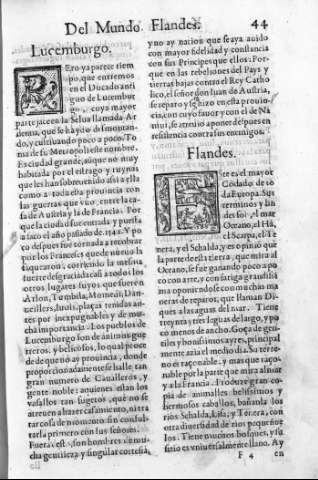 Del Mundo. Flandes. 44
Lucemburgo.
PEro ya parece tiem
po, que entremos
en el Ducado anti
guo de Lucembur
go, cuya mayor
parte jace en la Selua llamada Ar
denna, que se ha ydo desmontan-
do, y cultivando poco a poco. To
ma de su Metropoli este nombre.
Es ciudad grande, aũque no muy
habitada por el estrago y ruynas
que les han sobreuenido assi a ella
como a toda esta prouincia con
las guerras que vuo, entre la ca-
sa de Austria y la de Francia. Por
que la ciudad fue entrada y puesta
a saco el año passado de 1542. Y po
co despues fue tornada a recobrar
por los Franceses que de nueuo la
saquearon; corriendo la mesma
fuerte desgracia casi a todos los
otros lugares suyos que fueron
Arlon, Momedi, Dan-
uillers, Iuois, plaças tenidas an-
tes por inexpugnables y de mu-
cha importancia. Los pueblos de
Lucemburgo son de animos guer
reros, y belicosos, lo qual proce
de de que no ay prouincia, donde
proporcionadamente se halle tan
gran numero de Caualleros, y
gente noble: aunienes estan los
vasallos tan sugetos, que no se
atreuen a hazer casamiento, ni tra
tar cosa de momento sin consul-
tarla primero con sus señores.
Fuera desto, son hombres de mu-
cha gentileza y singular cortesia,
y no ay nation que se aya auido
con mayor fidelidad y constancia
con sus Principes que ellos: Por-
que en las rebeliones del Pays y
tierras bajas contra el Rey Catho
lico, el señor don Juan de Austria,
se reparo y se hizo en esta prouin-
cia, con cuyo fauor y con el de Na
mur, se atreuio a poner despues en
resistencia contra sus enemigos.
Flandes.
ESte es el mayor
Cõdado de to
da Europa. Sus
terminos y lin
des son, el mar
Oceano, el Hà,
el Scarpa, el Te
nera, y el Schalda, y es opinió que
la parte desta tierra, que mira al
Oceano, se fue ganando poco a po
co con arte, y con fatiga grandissi
ma oponiendose con muchas ma
neras de reparos, que llaman Di-
ques a las aguas del mar. Tiene
treynta y tres leguas de largo, y po
co menos de ancho. Goça de gen-
tiles y bonissimos ayres, principal
mente azia el medio dia. Su terre-
no es raçonable: y mas que raço-
nable por la parte que mira al mar
y a la Francia. Produze gran co-
pia de animales belissimos, y
hermosos caballos, bañanla los
rios Schalda, Lisa, y Tenera, con
otra diversidad de rios pequeños
los. Tiene muchos bosques, y su
sitio es vniuersalmente llano. Ay
F 4 en